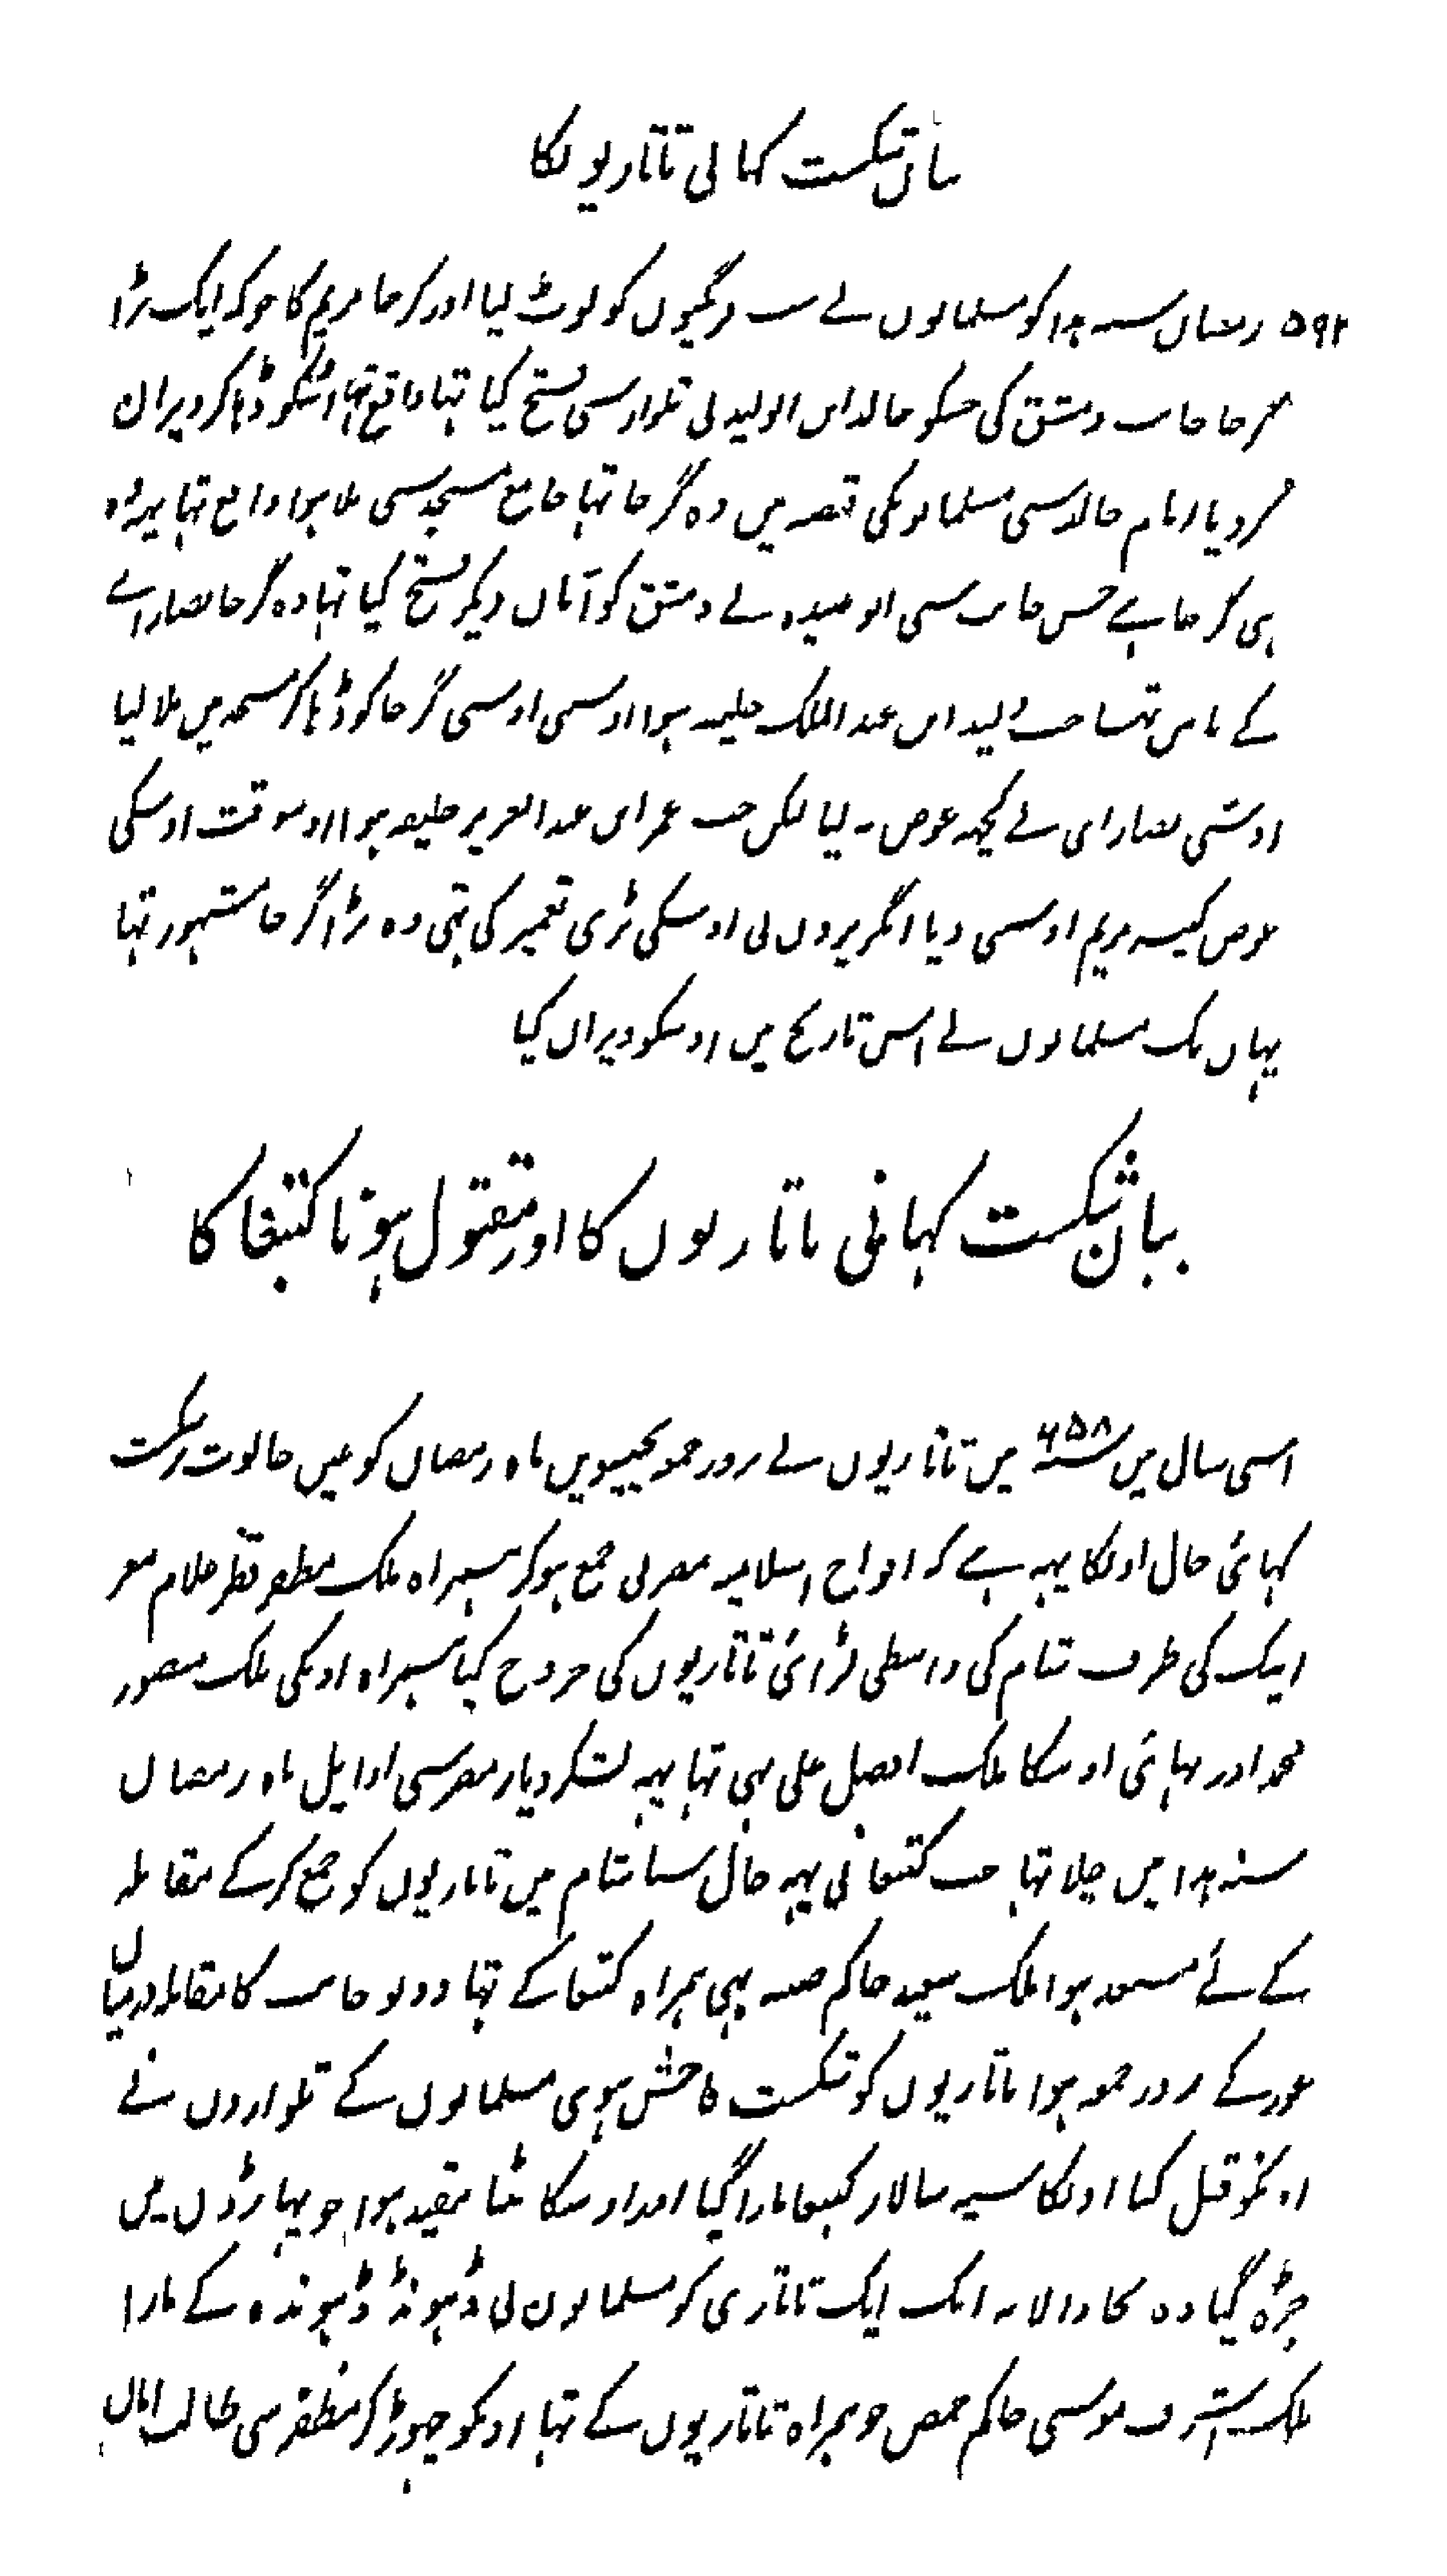 بیان شکست کہانی تاتاریونکا
۵۹۲ رمضان سنہ ہذا کو مسلمانوں نے سب فرنگیوں کو لوٹ لیا اور گرجا مریم کا جو کہ ایک بڑا
گرجا جانب دمشق کی جسکو خالد ابن الولید نی تلوار سی فتح کیا تہا واقع تہا اسکو ڈہا کر ویران
کردیا ایام خالد سی مسلمانونکی قبضہ میں وہ گرجا تہا جامع مسجد سی ملا ہوا واقع تہا یہہ وہ
ہی گرجا ہے جس جانب سی ابو عبیدہ نے دمشق کو امان دیکر فتح کیا تہا وہ گرجا نصارائے
کے پاس تہا جب ولید ابن عبد الملک خلیفہ ہوا اوسی اوسی گرجا کو ڈہا کر مسجد میں ملا لیا
اوسی نصارای نے کچہہ عوض نہ لیا لیکن جب عمر ابن عبد العزیز خلیفہ ہوا اوسوقت اوسکی
عوض کنیسہ مریم اوسی دیا انگریزوں نی اوسکی بڑی تعمیر کی تہی وہ بڑا گرجا مشہور تہا
یہاں تک مسلمانوں نے اس تاریخ میں اوسکو ویران کیا
بیان شکست کہانی تاتاریوں کا اور مقتول ہونا کتبغا کا
اسی سال میں ۶۵۸ سنہ میں تاتاریوں نے روز جمعہ پچیسویں ماہ رمضان کو عین جالوت پر شکست
کہائی حال اونکا یہہ ہے کہ افواج اسلامیہ مصر نی جمع ہوکر ہمراہ ملک مظفر قطز غلام معز
ایبک کی طرف شام کی واسطی لڑائی تاتاریوں کی خروج کیا ہمراہ اونکی ملک منصور
محمد اور بہائی اوسکا ملک افضل علی بہی تہا یہہ لشکر دیار مصر سی اوایل ماہ رمضان
سنہ ہذا میں چلا تہا جب کتبغا نی یہہ حال سنا شام میں تاتاریوں کو جمع کرکے مقابلہ
کے لئے مستعد ہوا ملک سعید حاکم صبیبہ بہی ہمراہ کتبغا کے تہا دونو جانب کا مقابلہ درمیان
غور کے روز جمعہ ہوا تاتاریوں کو شکست فاحش ہوی مسلمانوں کے تلواروں نے
اونکو قتل کیا اونکا سپہ سالار کتبغا مارا گیا اور اوسکا بیٹا مقید ہوا جو پہاڑوں میں
چڑہ گیا وہ بہا والا نہ ایک ایک تاتاری کو مسلمانون نی ڈہونڈ ڈہونڈہ کے مارا
ملک اشرف موسی حاکم حمص جو ہمراہ تاتاریوں کے تہا اونکو چہوڑ کر مظفر سی طالب امان